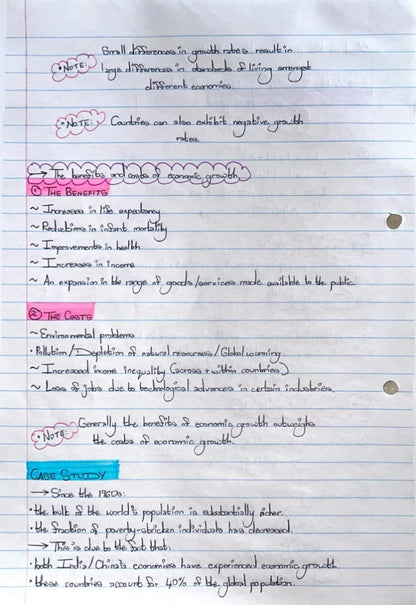 Small differences in growth rates result in
• NOTE: large differences in standards of living amongst
different economies.
• NOTE: Countries can also exhibit negative growth
rates.
→ The benefits and costs of economic growth
① THE BENEFITS
~ Increases in life expectancy
~ Reductions in infant mortality
~ Improvements in health
~ Increases in income
~ An expansion in the range of goods/services made available to the public.
② THE COSTS
~ Environmental problems
• Pollution/Depletion of natural resources/Global warming.
~ Increased income inequality (across + within countries)
~ Loss of jobs due to technological advances in certain industries.
• NOTE: Generally the benefits of economic growth outweighs
the costs of economic growth.
CASE STUDY
→ Since the 1960s:
• the bulk of the world's population is substantially richer.
• the fraction of poverty-stricken individuals has decreased.
→ This is due to the fact that:
• both India/China's economies have experienced economic growth.
• these countries account for 40% of the global population.